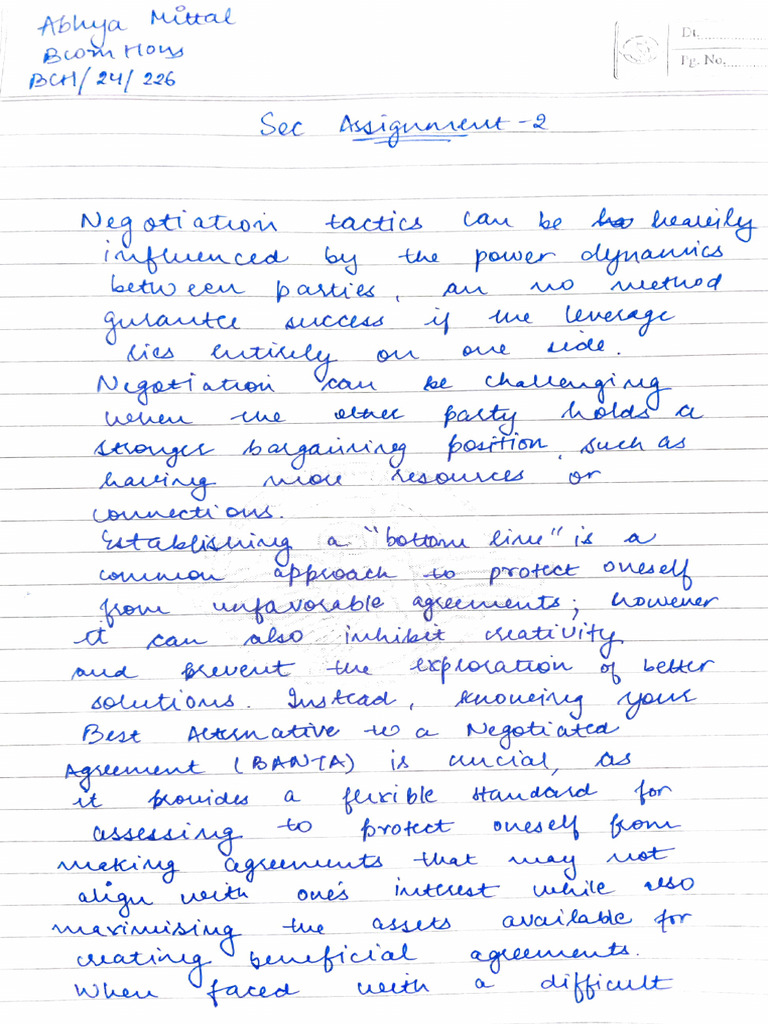 Abhya Mittal
Bcom Hons
BCH/24/226
Dt.............
Pg. No..........
Sec Assignment-2
Negotiation tactics can be heavily
influenced by the power dynamics
between parties, an no method
gurantee success if the leverage
lies entirely on one side.
Negotiation can be challenging
when the other party holds a
stronger bargaining position, such as
having more resources or
connections.
Establishing a "bottom line" is a
common approach to protect oneself
from unfavorable agreements; however
it can also inhibit creativity
and prevent the exploration of better
solutions. Instead, knowing your
Best Alternative to a Negotiated
Agreement (BANTA) is crucial, as
it provides a flexible standard for
assessing to protect oneself from
making agreements that may not
align with one's interest while also
maximising the assets available for
creating beneficial agreements.
When faced with a difficult